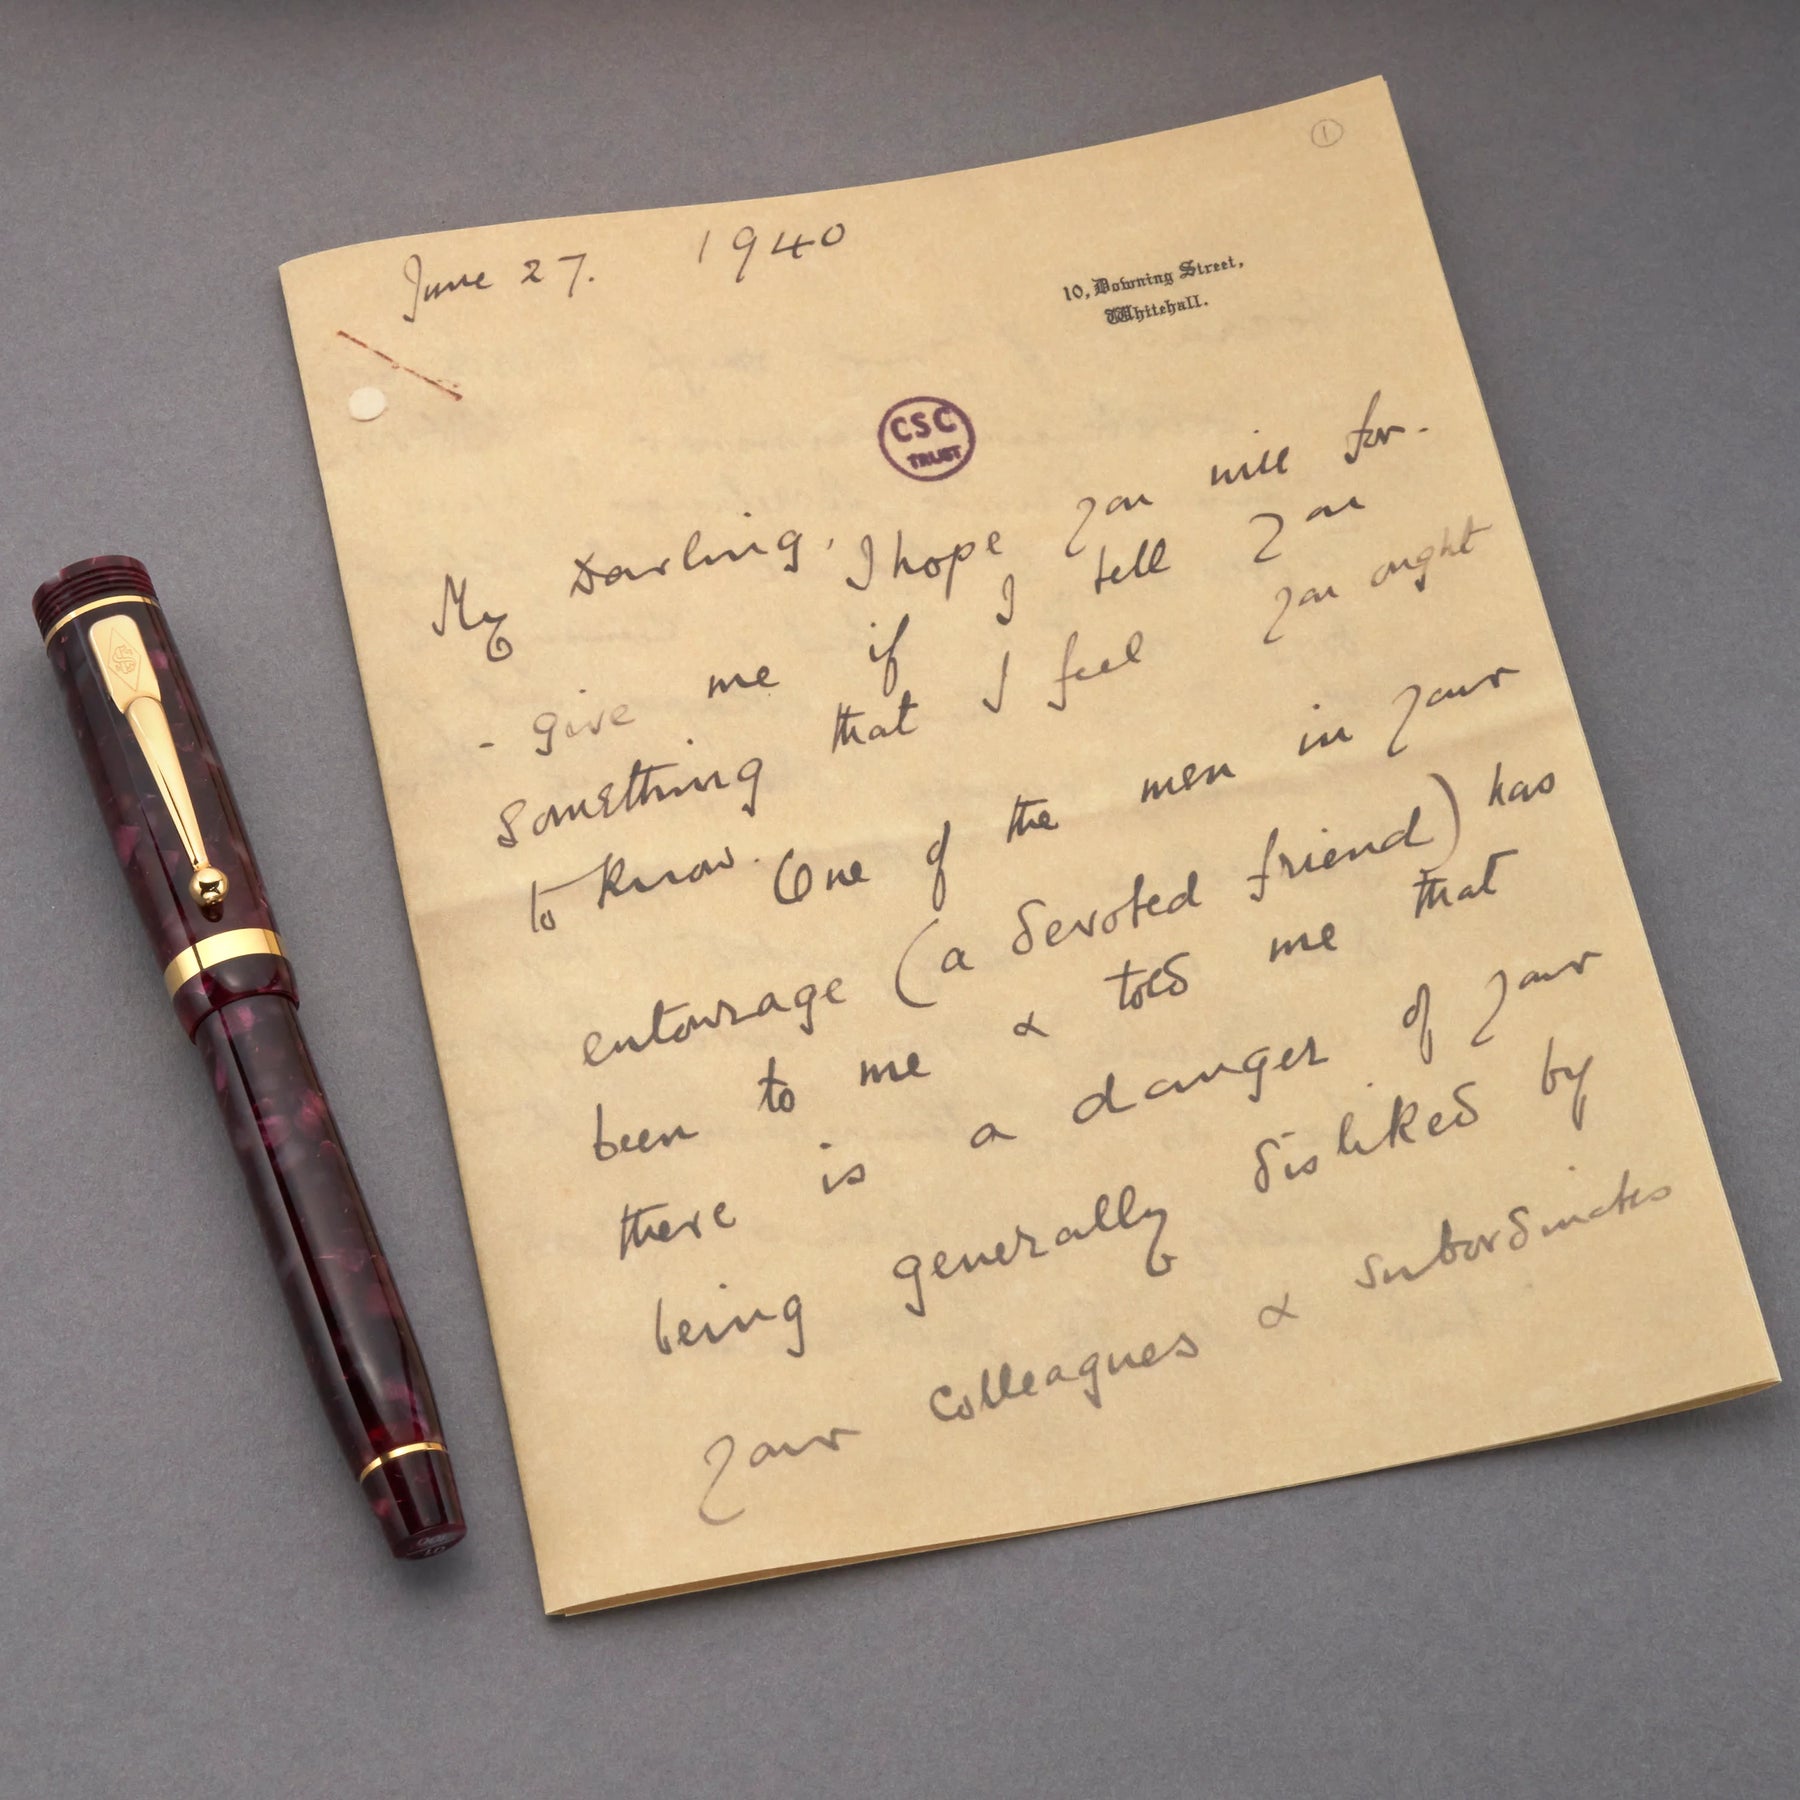 ①
June 27. 1940
10, Downing Street,
Whitehall.
CSC
TRUST
My Darling, I hope you will for-
- give me if I tell you
something that I feel you ought
to know. One of the men in your
entourage (a devoted friend) has
been to me & told me that
there is a danger of your
being generally disliked by
your colleagues & subordinates